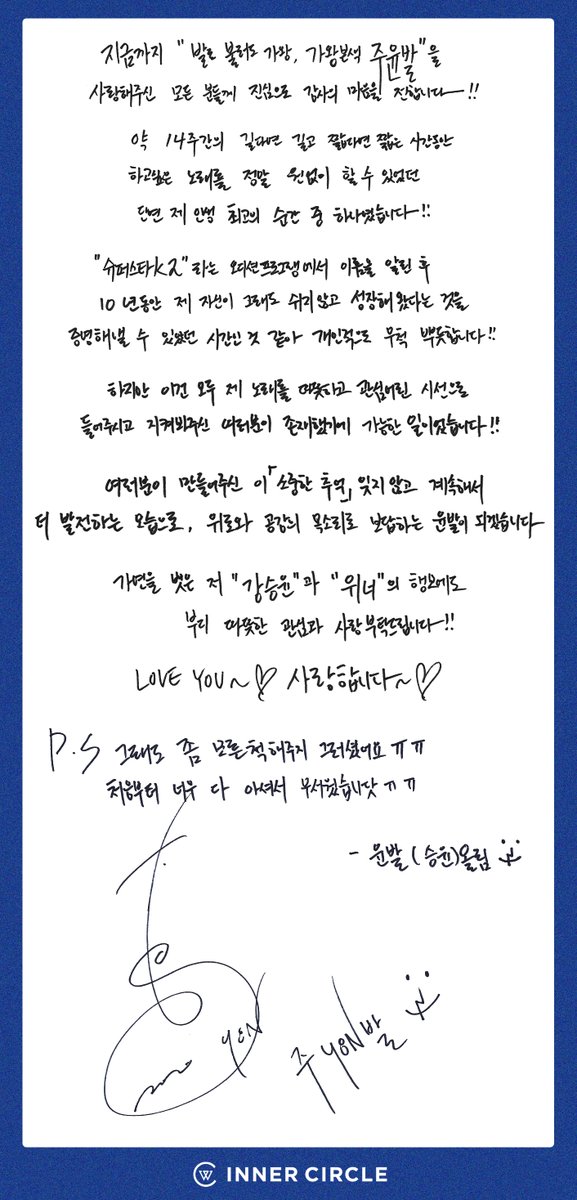 지금까지 "발로 불러도 가왕, 가왕본색 주윤발"을
사랑해주신 모든 분들께 진심으로 감사의 마음을 전합니다-!!
약 14주간의 길다면 길고 짧다면 짧은 시간동안
하고싶은 노래를 정말 원없이 할 수 있었던
단연 제 인생 최고의 순간 중 하나였습니다-!!
"슈퍼스타K2"라는 오디션프로그램에서 이름을 알린 후
10년동안 제 자신이 그래도 쉬지않고 성장해왔다는 것을
증명해낼 수 있었던 시간인 것 같아 개인적으로 무척 뿌듯합니다!!
하지만 이건 모두 제 노래를 따뜻하고 관심어린 시선으로
들어주시고 지켜봐주신 여러분이 존재했기에 가능한 일이었습니다!!
여러분이 만들어주신 이「소중한 추억」잊지않고 계속해서
더 발전하는 모습으로, 위로와 공감의 목소리로 보답하는 윤발이 되겠습니다-
가면을 벗은 저 "강승윤"과 "위너"의 행보에도
부디 따뜻한 관심과 사랑부탁드립니다-!!
LOVE YOU~♡ 사랑합니다~♡
P.S 그래도 좀 모른척해주지 그러셨어요 ㅠㅠ
처음부터 너무 다 아셔서 무서웠습니닷ㅠㅠ
- 윤발(승윤)올림
YOON
주YOON발
INNER CIRCLE